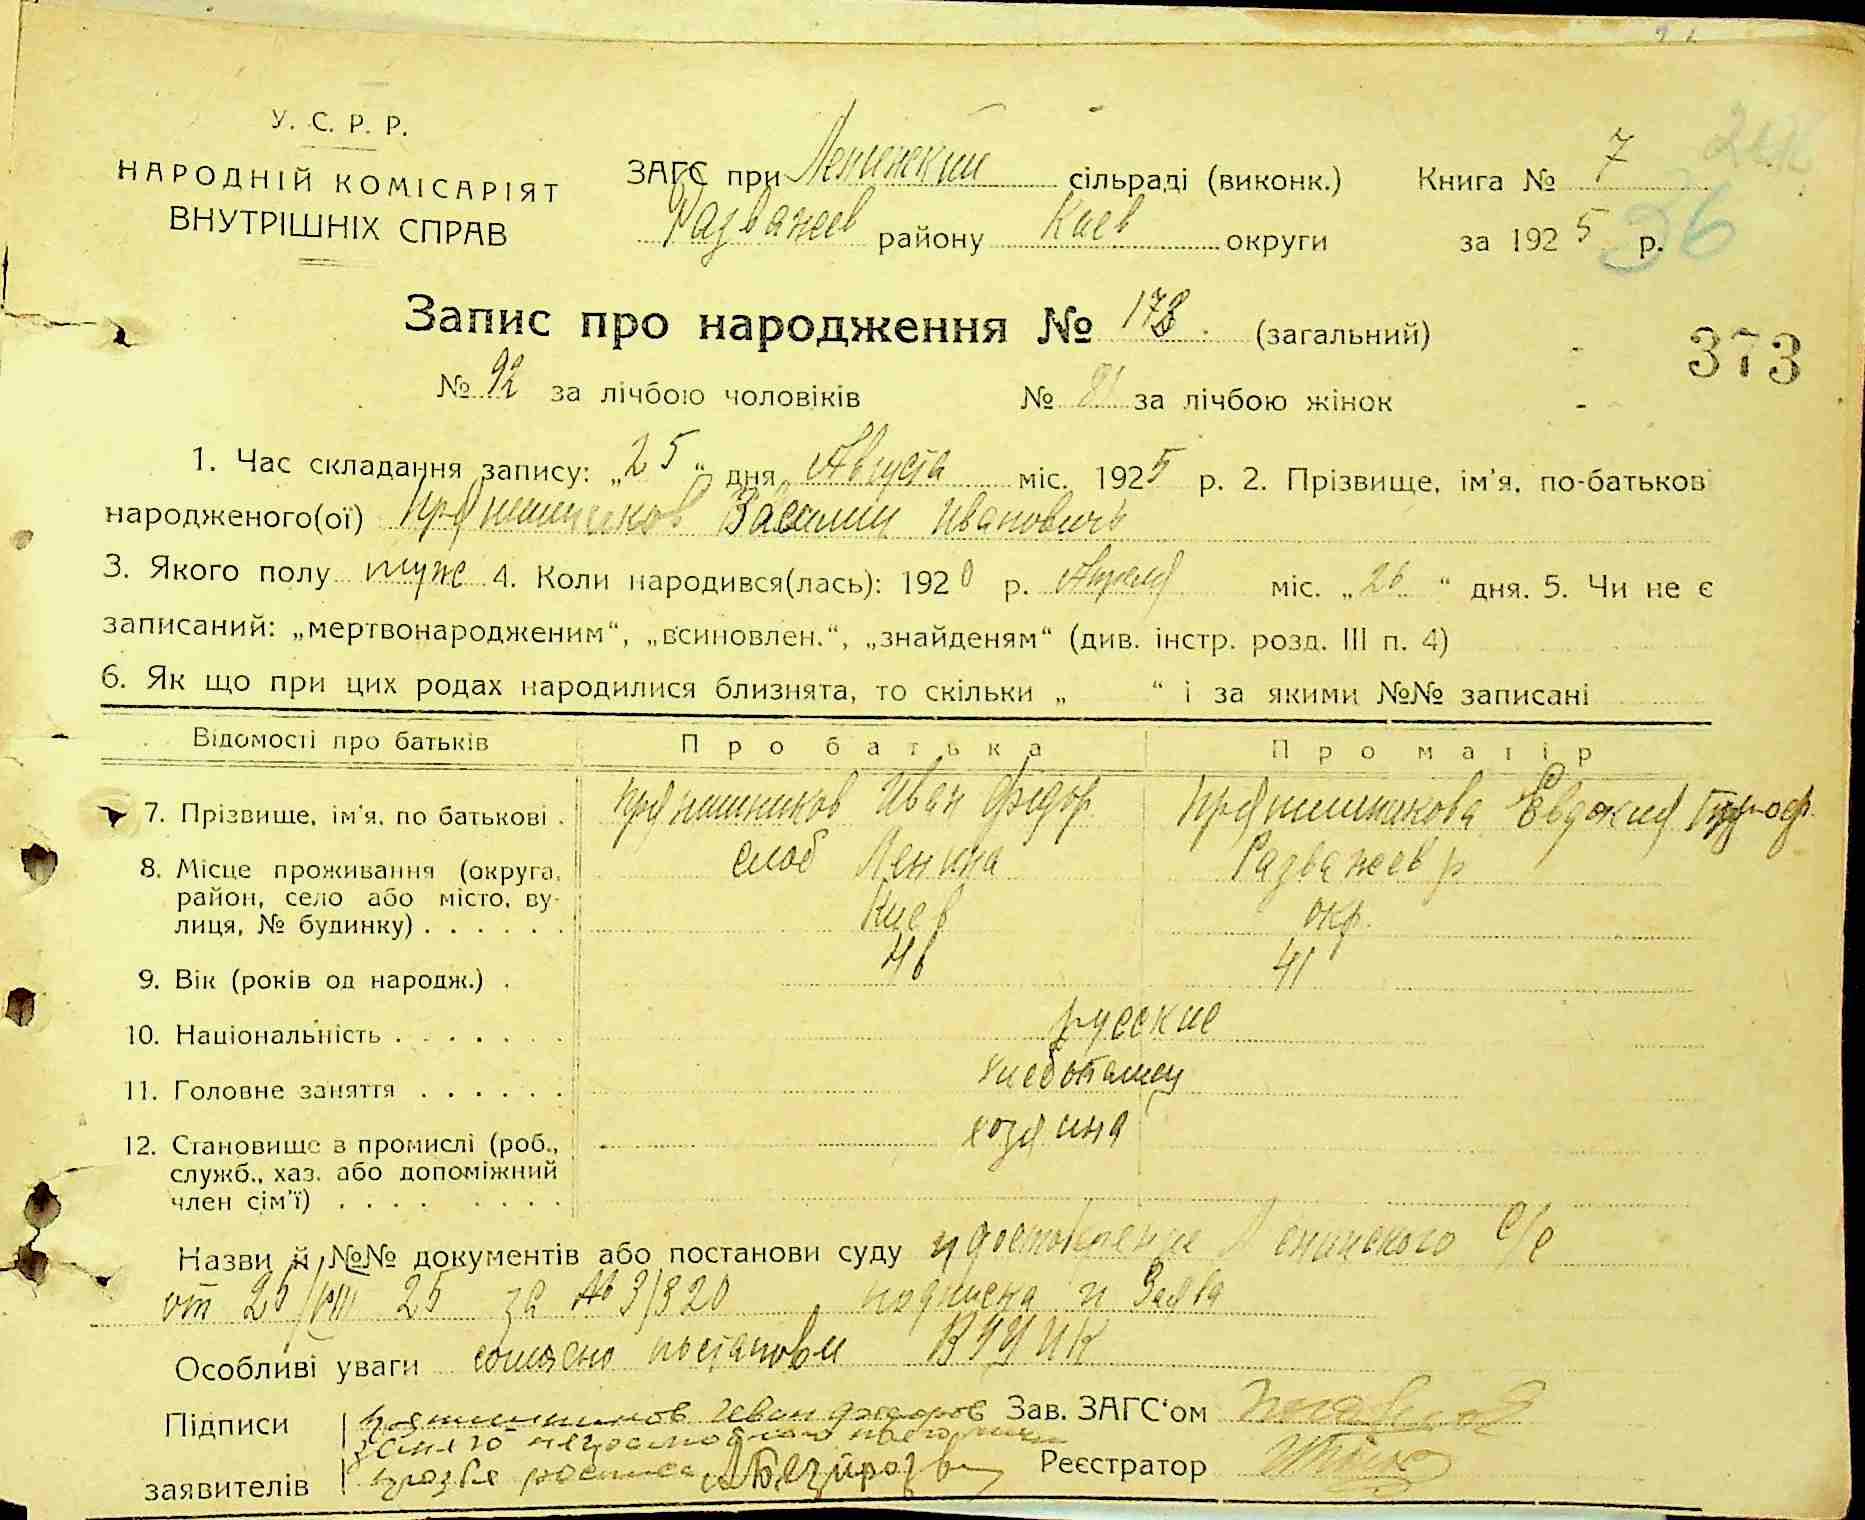 У. С. Р. Р.
НАРОДНІЙ КОМІСАРІЯТ
ВНУТРІШНІХ СПРАВ
ЗАГС при Ленинский сільраді (виконк.) Книга № 7
Разважев району Киев округи за 1925 р.
36
Запис про народження № 178. (загальний)
373
№ 92 за лічбою чоловіків № 81 за лічбою жінок
1. Час складання запису: „25“ дня Августа міс. 1925 р. 2. Прізвище, ім'я, по-батьков
народженого(ої) Василий Иванович
3. Якого полу муж 4. Коли народився(лась): 1920 р. Апреля міс. „26“ дня. 5. Чи не є
записаний: „мертвонародженим“, „всиновлен.“, „знайденям“ (див. інстр. розд. III п. 4)
6. Як що при цих родах народилися близнята, то скільки „ “ і за якими №№ записані
Відомості про батьків Про батька Про матір
7. Прізвище, ім'я, по батькові . Иван Федор Евдокия
8. Місце проживання (округа, слоб Ленина Разважев р
район, село або місто, ву-
лиця, № будинку) . . . . . . Киев окр.
9. Вік (років од народж.) . 46 41
10. Національність . . . . . . . русские
11. Головне заняття . . . . . . хлебопашец
12. Становище в промислі (роб., хозяина
служб., хаз. або допоміжний
член сім'ї) . . . . . . . .
Назви й №№ документів або постанови суду удостоверение Ленинского С/С
от 25/VIII 25 за № 3/320 подписка и Заява
Особливі уваги постановл ВУЦИК
Підписи Иван Федоров Зав. ЗАГС'ом
заявителів Реєстратор